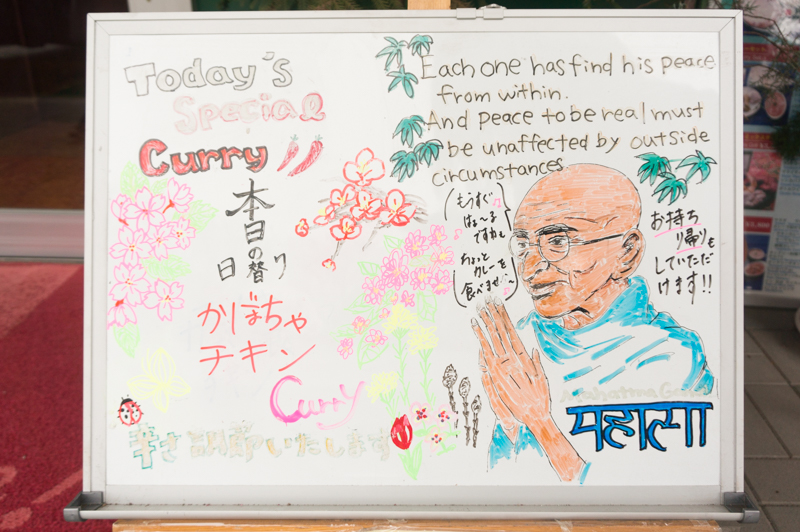 Today's
Special
Curry
本日の
日替り
かぼちゃ
チキン
Curry
辛さ調節いたします
Each one has find his peace
from within.
And peace to be real must
be unaffected by outside
circumstances
もうすぐ
はぁ〜る
ですねぇ
ちょっと
カレーを
食べませ〜
お持ち
帰りも
していただ
けます!!
Mahatma Gandhi
महात्मा